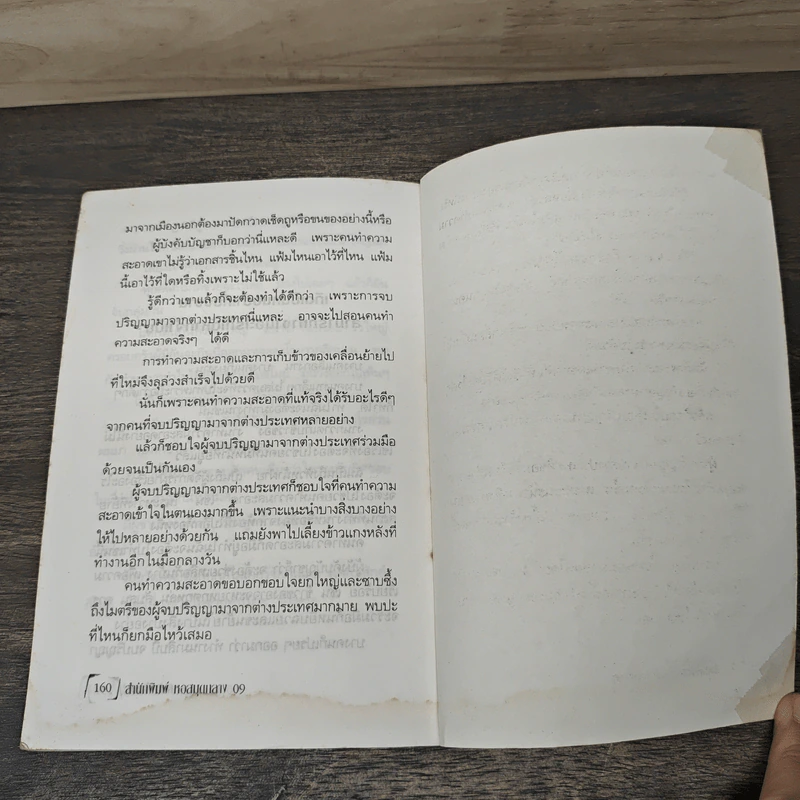 มาจากเมืองนอกต้องมาปัดกวาดเช็ดถูหรือขนของอย่างนี้หรือ
ผู้บังคับบัญชาก็บอกว่านี่แหละดี เพราะคนทำความ
สะอาดเขาไม่รู้ว่าเอกสารชิ้นไหน แฟ้มไหนเอาไว้ที่ไหน แฟ้ม
นี้เอาไว้ที่ใดหรือทิ้งเพราะไม่ใช้แล้ว
รู้ดีกว่าเขาแล้วก็จะต้องทำได้ดีกว่า เพราะการจบ
ปริญญามาจากต่างประเทศนี่แหละ อาจจะไปสอนคนทำ
ความสะอาดจริงๆ ได้ดี
การทำความสะอาดและการเก็บข้าวของเคลื่อนย้ายไป
ที่ใหม่จึงลุล่วงสำเร็จไปด้วยดี
นั่นก็เพราะคนทำความสะอาดที่แท้จริงได้รับอะไรดีๆ
จากคนที่จบปริญญามาจากต่างประเทศหลายอย่าง
แล้วก็ชอบใจผู้จบปริญญามาจากต่างประเทศร่วมมือ
ด้วยจนเป็นกันเอง
ผู้จบปริญญามาจากต่างประเทศก็ชอบใจที่คนทำความ
สะอาดเข้าใจในตนเองมากขึ้น เพราะแนะนำบางสิ่งบางอย่าง
ให้ไปหลายอย่างด้วยกัน แถมยังพาไปเลี้ยงข้าวแกงหลังที่
ทำงานอีกในมื้อกลางวัน
คนทำความสะอาดขอบอกขอบใจยกใหญ่และซาบซึ้ง
ถึงไมตรีของผู้จบปริญญามาจากต่างประเทศมากมาย พบปะ
ที่ไหนก็ยกมือไหว้เสมอ
160 สำนักพิมพ์ หอสมุดกลาง 09